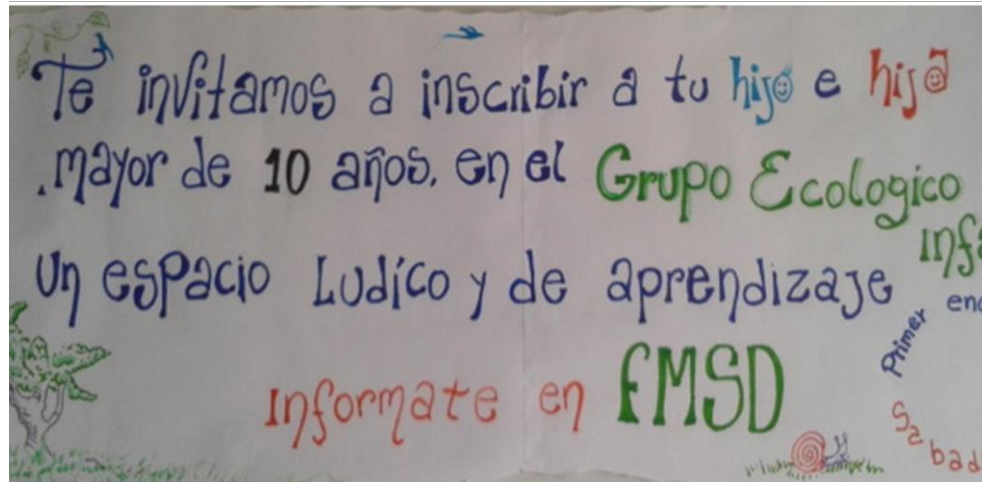 Te invitamos a inscribir a tu hijo e hija
.mayor de 10 años. en el Grupo Ecologico
Un espacio Ludíco y de aprendizaje
Informate en FMSD
Primer